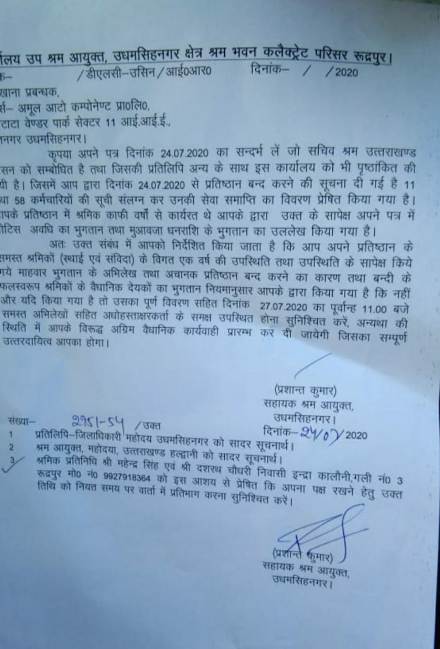 र्यालय उप श्रम आयुक्त, उधमसिहनगर क्षेत्र श्रम भवन कलैक्ट्रेट परिसर रूद्रपुर।
/डीएलसी–उसिन/आई0आर0 दिनांक– / /2020
खाना प्रबन्धक,
र्स– अमूल आटो कम्पोनेण्ट प्रा0लि0,
टाटा वेण्डर पार्क सेक्टर 11 आई.आई.ई.,
नगर उधमसिहनगर।
कृपया अपने पत्र दिनांक 24.07.2020 का सन्दर्भ लें जो सचिव श्रम उत्तराखण्ड
सन को सम्बोधित है तथा जिसकी प्रतिलिपि अन्य के साथ इस कार्यालय को भी पृष्ठांकित की
यी है। जिसमें आप द्वारा दिनांक 24.07.2020 से प्रतिष्ठान बन्द करने की सूचना दी गई है 11
था 58 कर्मचारियों की सूची संलग्न कर उनकी सेवा समाप्ति का विवरण प्रेषित किया गया है।
ापके प्रतिष्ठान में श्रमिक काफी वर्षों से कार्यरत थे आपके द्वारा उक्त के सापेक्ष अपने पत्र में
ोटिस अवधि का भुगतान तथा मुआवजा धनराशि के भुगतान का उललेख किया गया है।
अतः उक्त संबंध में आपको निर्देशित किया जाता है कि आप अपने प्रतिष्ठान के
समस्त श्रमिकों (स्थाई एवं संविदा) के विगत एक वर्ष की उपस्थिति तथा उपस्थिति के सापेक्ष किये
गये माहवार भुगतान के अभिलेख तथा अचानक प्रतिष्ठान बन्द करने का कारण तथा बन्दी के
फलस्वरूप श्रमिकों के वैधानिक देयकों का भुगतान नियमानुसार आपके द्वारा किया गया है कि नहीं
और यदि किया गया है तो उसका पूर्ण विवरण सहित दिनांक 27.07.2020 का पूर्वान्ह 11.00 बजे
समस्त अभिलेखों सहित अधोहस्ताक्षरकर्ता के समक्ष उपस्थित होना सुनिश्चित करें, अन्यथा की
स्थिति में आपके विरूद्ध अग्रिम वैधानिक कार्यवाही प्रारम्भ कर दी जायेगी जिसका सम्पूर्ण
उत्तरदायित्व आपका होगा।
(प्रशान्त कुमार)
सहायक श्रम आयुक्त,
उधमसिहनगर।
संख्या– 2951-54 /उक्त दिनांक– 24/07/2020
1 प्रतिलिपि–जिलाधिकारी महोदय उधमसिहनगर को सादर सूचनार्थ।
2 श्रम आयुक्त, महोदया, उत्तराखण्ड हल्द्वानी को सादर सूचनार्थ।
3 श्रमिक प्रतिनिधि श्री महेन्द्र सिंह एवं श्री दशरथ चौधरी निवासी इन्द्रा कालौनी,गली नं0 3
रूद्रपुर मो0 नं0 9927918364 को इस आशय से प्रेषित कि अपना पक्ष रखने हेतु उक्त
तिथि को नियत समय पर वार्ता में प्रतिभाग करना सुनिश्चित करें।
(प्रशान्त कुमार)
सहायक श्रम आयुक्त,
उधमसिहनगर।